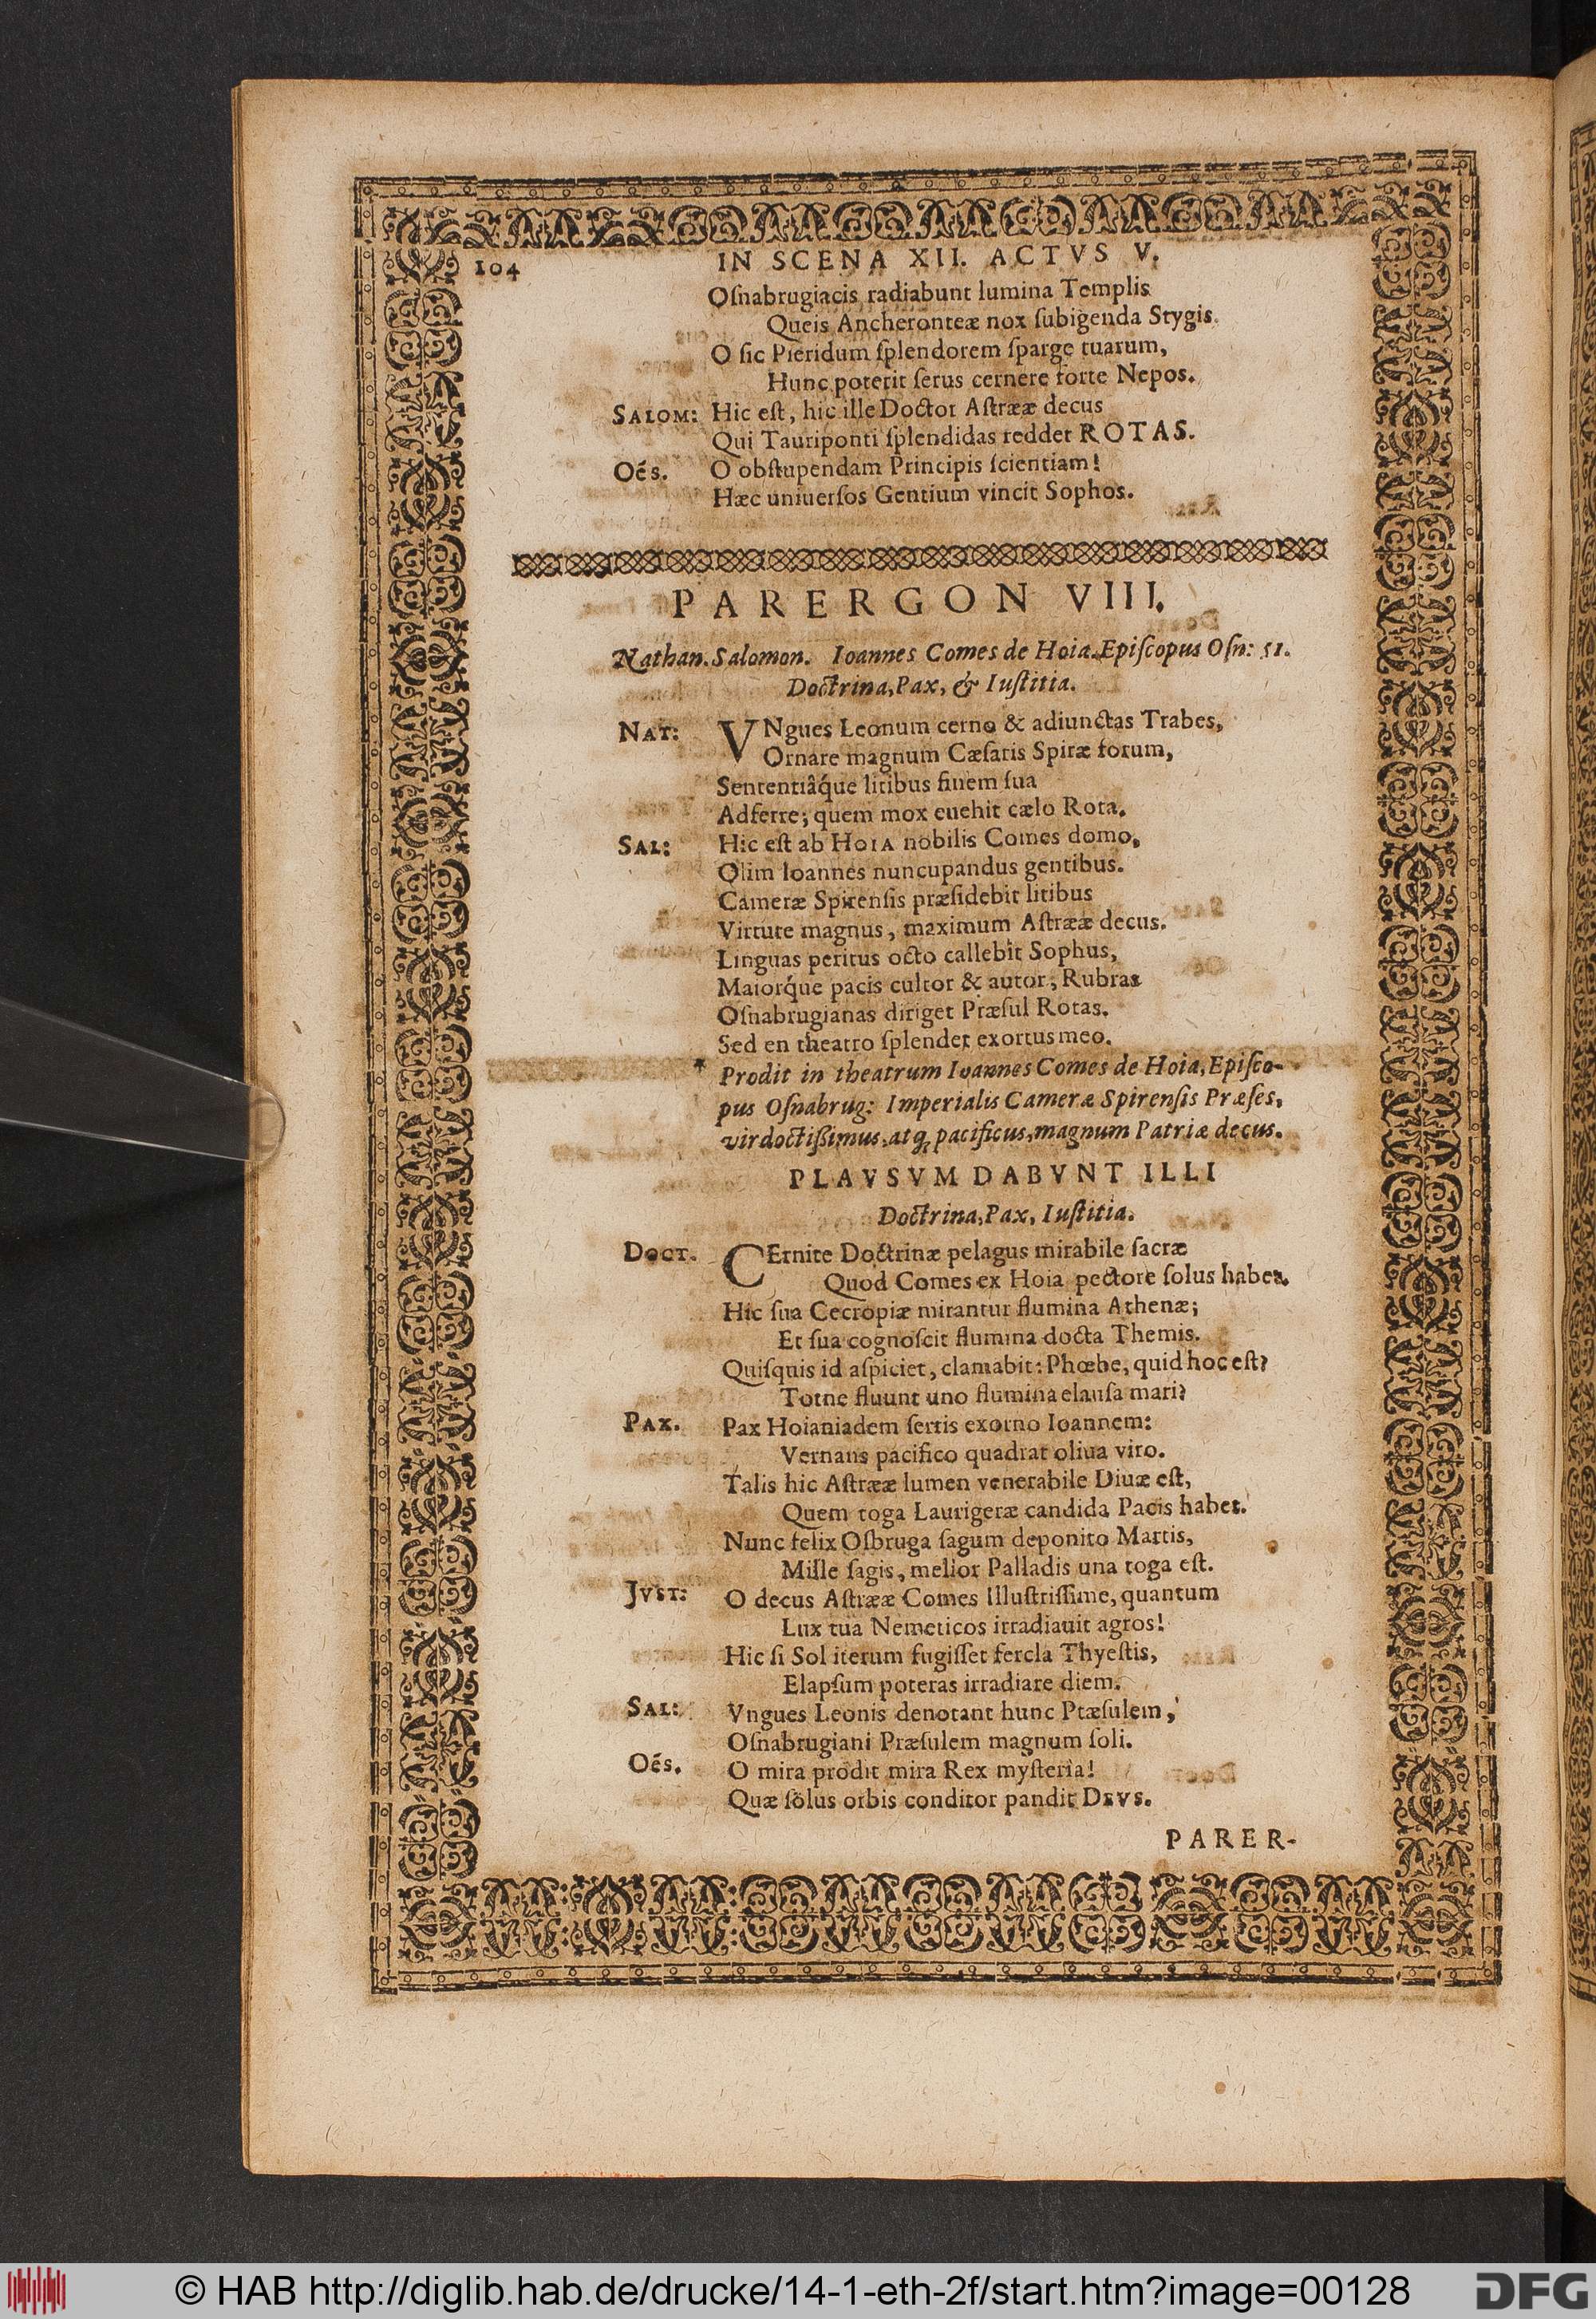 104 IN SCENA XII. ACTVS V.
Oſnabrugiacis radiabunt lumina Templis
Queis Ancheronteæ nox ſubigenda Stygis.
O ſic Pieridum ſplendorem ſparge tuarum,
Hunc poterit ſerus cernere forte Nepos.
SALOM: Hic eſt, hic ille Doctor Aſtrææ decus
Qui Tauriponti ſplendidas reddet ROTAS.
Oẽs. O obſtupendam Principis ſcientiam!
Hæc uniuerſos Gentium vincit Sophos.
PARERGON VIII.
Nathan. Salomon. Ioannes Comes de Hoia. Epiſcopus Oſn: 51.
Doctrina, Pax, & Iuſtitia.
NAT: VNgues Leonum cerno & adiunctas Trabes,
Ornare magnum Cæſaris Spiræ forum,
Sententiâq́ue litibus finem ſua
Adferre; quem mox euehit cælo Rota.
SAL: Hic eſt ab HOIA nobilis Comes domo,
Olim Ioannes nuncupandus gentibus.
Cameræ Spirenſis præſidebit litibus
Virtute magnus, maximum Aſtrææ decus.
Linguas peritus octo callebit Sophus,
Maiorq́ue pacis cultor & autor, Rubras
Oſnabrugianas diriget Præſul Rotas.
Sed en theatro ſplendet exortus meo.
* Prodit in theatrum Ioannes Comes de Hoia, Epiſco-
pus Oſnabrug: Imperialis Cameræ Spirenſis Præſes,
vir doctißimus, atq; pacificus, magnum Patriæ decus.
PLAVSVM DABVNT ILLI
Doctrina, Pax, Iuſtitia.
DOCT. CErnite Doctrinæ pelagus mirabile ſacræ
Quod Comes ex Hoia pectore ſolus habet.
Hic ſua Cecropiæ mirantur flumina Athenæ;
Et ſua cognoſcit flumina docta Themis.
Quiſquis id aſpiciet, clamabit: Phœbe, quid hoc eſt?
Totne fluunt uno flumina elauſa mari?
PAX. Pax Hoianiadem ſertis exorno Ioannem:
Vernans pacifico quadrat oliua viro.
Talis hic Aſtrææ lumen venerabile Diuæ eſt,
Quem toga Laurigeræ candida Pacis habet.
Nunc felix Oſbruga ſagum deponito Martis,
Mille ſagis, melior Palladis una toga eſt.
JVST: O decus Aſtrææ Comes Illuſtriſſime, quantum
Lux tua Nemeticos irradiauit agros!
Hic ſi Sol iterum fugiſſet fercla Thyeſtis,
Elapſum poteras irradiare diem.
SAL: Vngues Leonis denotant hunc Præſulem,
Oſnabrugiani Præſulem magnum ſoli.
Oẽs. O mira prodit mira Rex myſteria!
Quæ ſolus orbis conditor pandit DEVS.
PARER-
© HAB http://diglib.hab.de/drucke/14-1-eth-2f/start.htm?image=00128
DFG